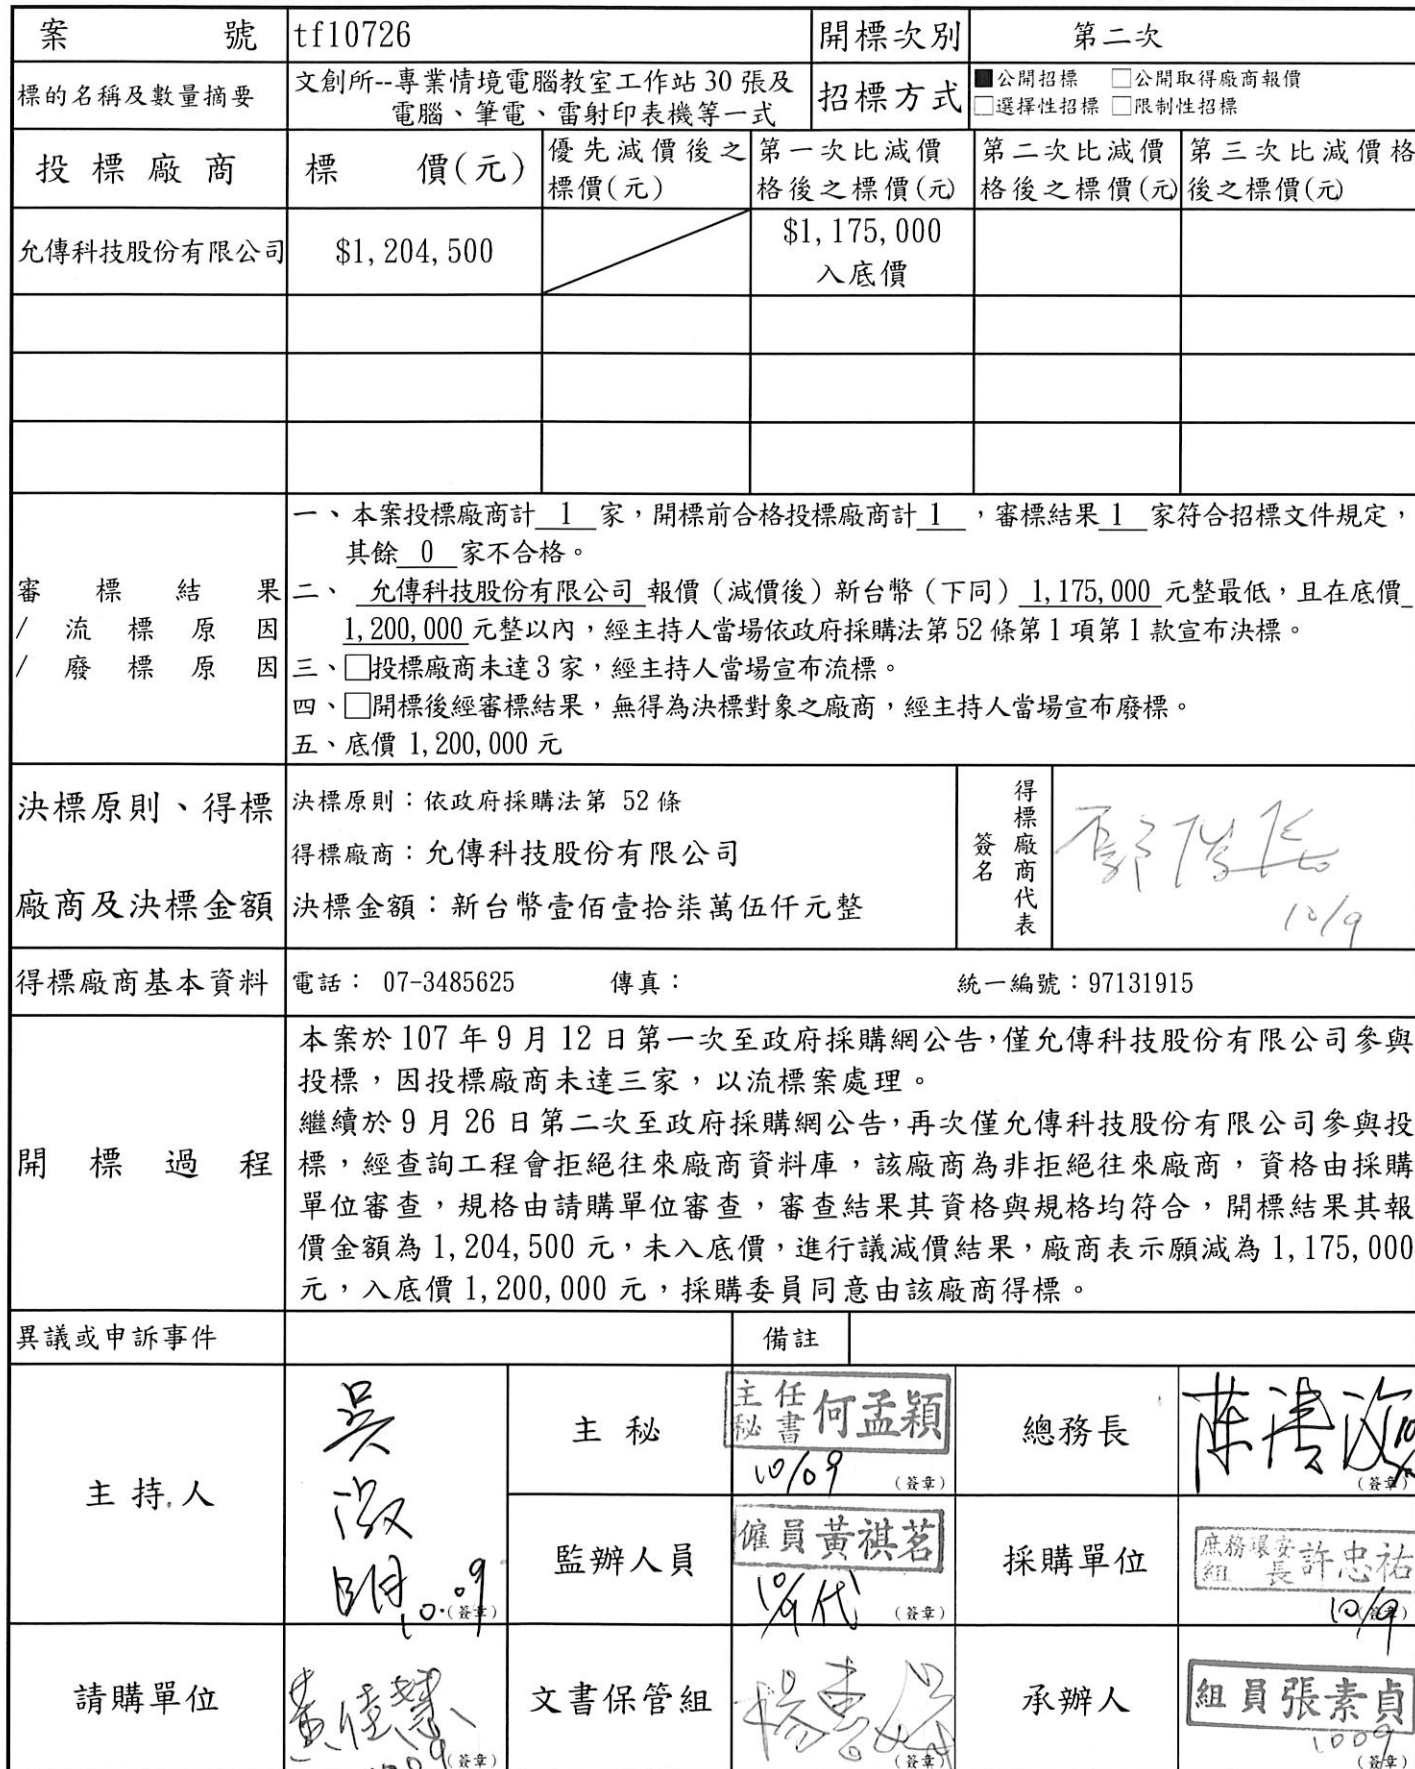 案號 tf10726 開標次別 第二次
標的名稱及數量摘要 文創所--專業情境電腦教室工作站 30 張及
電腦、筆電、雷射印表機等一式
招標方式 ■公開招標 □公開取得廠商報價
□選擇性招標 □限制性招標
投標廠商 標價(元) 優先減價後之
標價(元)
第一次比減價
格後之標價(元)
第二次比減價
格後之標價(元)
第三次比減價格
後之標價(元)
允傳科技股份有限公司 $1,204,500 $1,175,000
入底價
審標結果
/流標原因
/廢標原因
一、本案投標廠商計 1 家,開標前合格投標廠商計 1 ,審標結果 1 家符合招標文件規定,
其餘 0 家不合格。
二、 允傳科技股份有限公司 報價(減價後)新台幣(下同) 1,175,000 元整最低,且在底價
1,200,000 元整以內,經主持人當場依政府採購法第 52 條第 1 項第 1 款宣布決標。
三、□投標廠商未達 3 家,經主持人當場宣布流標。
四、□開標後經審標結果,無得為決標對象之廠商,經主持人當場宣布廢標。
五、底價 1,200,000 元
決標原則、得標
廠商及決標金額
決標原則:依政府採購法第 52 條
得標廠商:允傳科技股份有限公司
決標金額:新台幣壹佰壹拾柒萬伍仟元整
得標廠商代表
簽名
10/9
得標廠商基本資料 電話: 07-3485625 傳真: 統一編號:97131915
開標過程
本案於 107 年 9 月 12 日第一次至政府採購網公告,僅允傳科技股份有限公司參與
投標,因投標廠商未達三家,以流標案處理。
繼續於 9 月 26 日第二次至政府採購網公告,再次僅允傳科技股份有限公司參與投
標,經查詢工程會拒絕往來廠商資料庫,該廠商為非拒絕往來廠商,資格由採購
單位審查,規格由請購單位審查,審查結果其資格與規格均符合,開標結果其報
價金額為 1,204,500 元,未入底價,進行議減價結果,廠商表示願減為 1,175,000
元,入底價 1,200,000 元,採購委員同意由該廠商得標。
異議或申訴事件 備註
主持人 10.09 (簽章)
主秘 主任秘書 何孟穎 10/09 (簽章)
總務長 (簽章)
監辦人員 僱員黃祺茗 10/9 代 (簽章)
採購單位 庶務環安組長 許忠祐 10/9 (簽章)
請購單位 黃佳慧 1009 (簽章)
文書保管組 (簽章)
承辦人 組員張素貞 1009 (簽章)